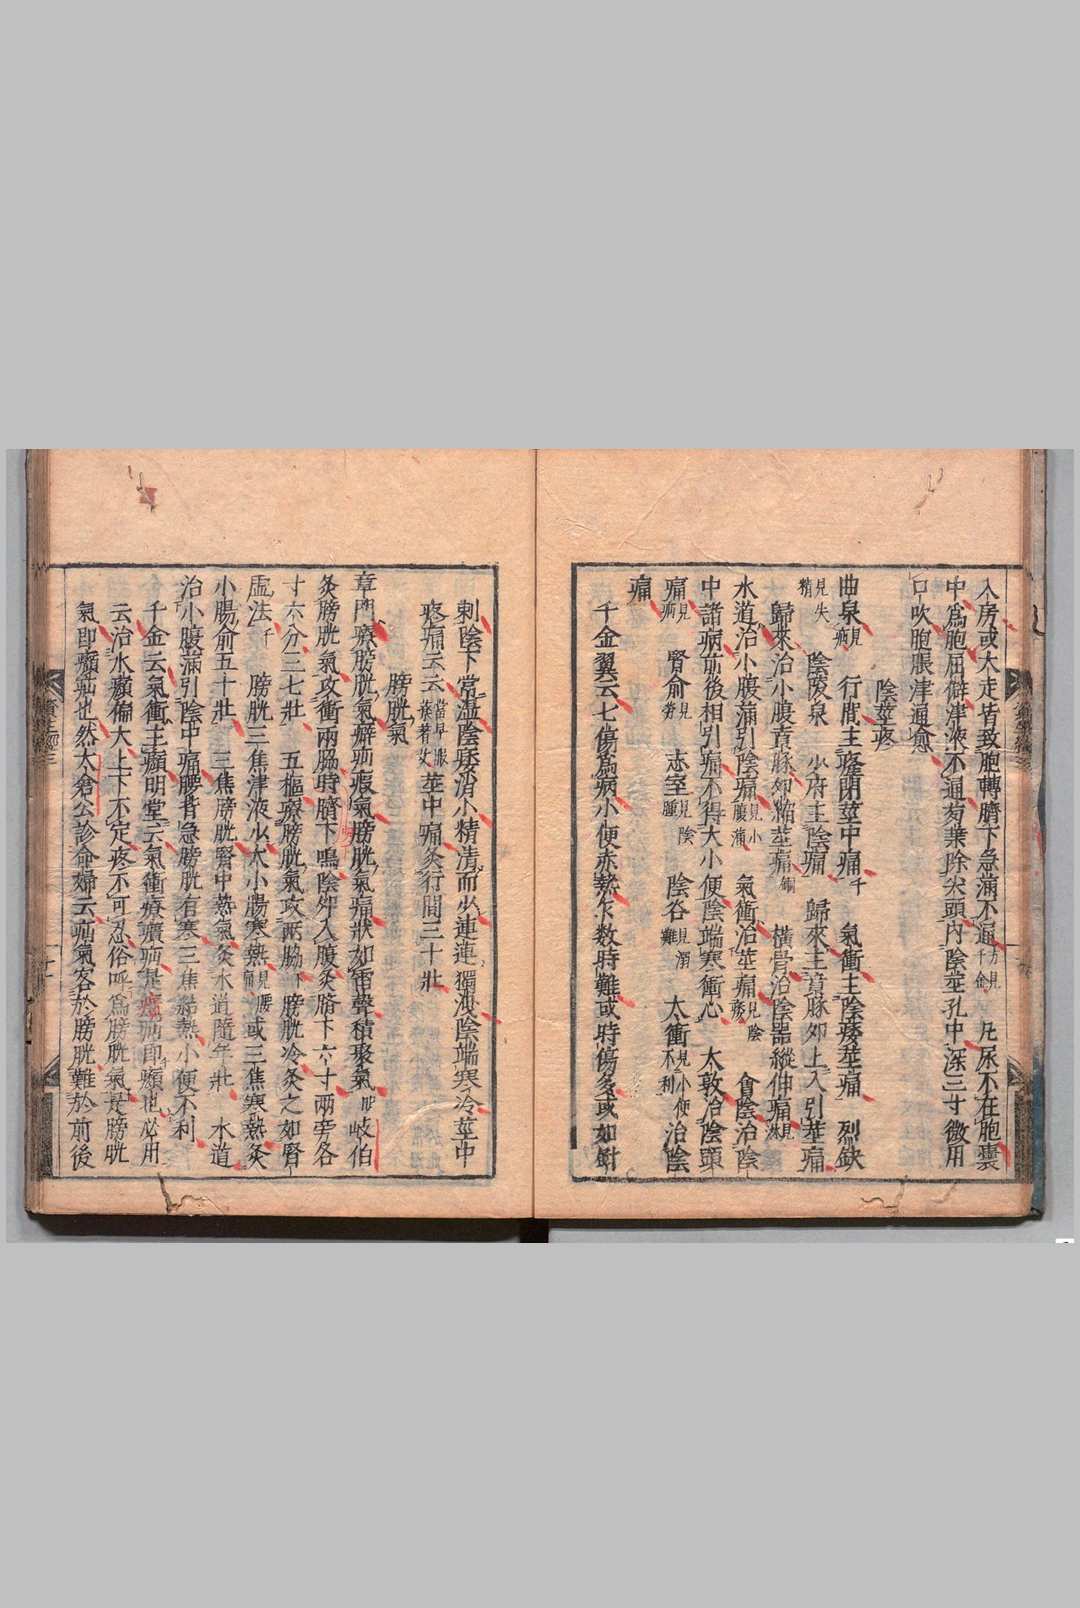 入房或大走皆致胞轉臍下急滿不通千金方見凡尿不在胞囊
中爲胞屈僻津液不通葱葉除尖頭内陰莖孔中深三寸微用
口吹胞脹津通愈
陰莖疼
曲泉見㿉行間主癃閉莖中痛千氣衝主陰痿莖痛列缺
見失精陰陵泉少府主陰痛歸來主賁豚卵上入引莖痛
歸來治小腹賁豚卵縮莖痛銅橫骨治陰器縱伸痛見淋
水道治小腹滿引陰痛見小腹滿氣衝治莖痛見陰痿會陰治陰
中諸病前後相引痛不得大小便陰端寒衝心大敦治陰頭
痛見㿉腎俞見勞志室見陰腫陰谷見溺難太衝見小便不利治陰
痛
千金翼云七傷爲病小便赤熱乍數時難或時傷多或如針
刺陰下常濕陰痿消小精清而少連連獨洩陰端寒冷莖中
疼痛云云當早服藥著艾莖中痛灸行間三十壯
膀胱氣
章門療膀胱氣癖疝瘕氣膀胱氣痛狀如雷聲積聚氣明岐伯
灸膀胱氣攻衝兩脇時臍下鳴陰卵入腹灸臍下六寸兩旁各
寸六分三七壯五樞療膀胱氣攻兩脇下膀胱冷灸之如腎
虚法千膀胱三焦津液少大小腸寒熱見腰痛或三焦寒熱灸
小腸俞五十壯三焦膀胱腎中熱氣灸水道隨年壯水道
治小腹滿引陰中痛腰背急膀胱有寒三焦結熱小便不利
千金云氣衝主㿉明堂云氣衝療㿉疝是㿉疝即㿉也必用
云治水㿉偏大上下不定疼不可忍俗呼爲膀胱氣是膀胱
氣即㿉疝也然太倉公診命婦云疝氣客於膀胱難於前後